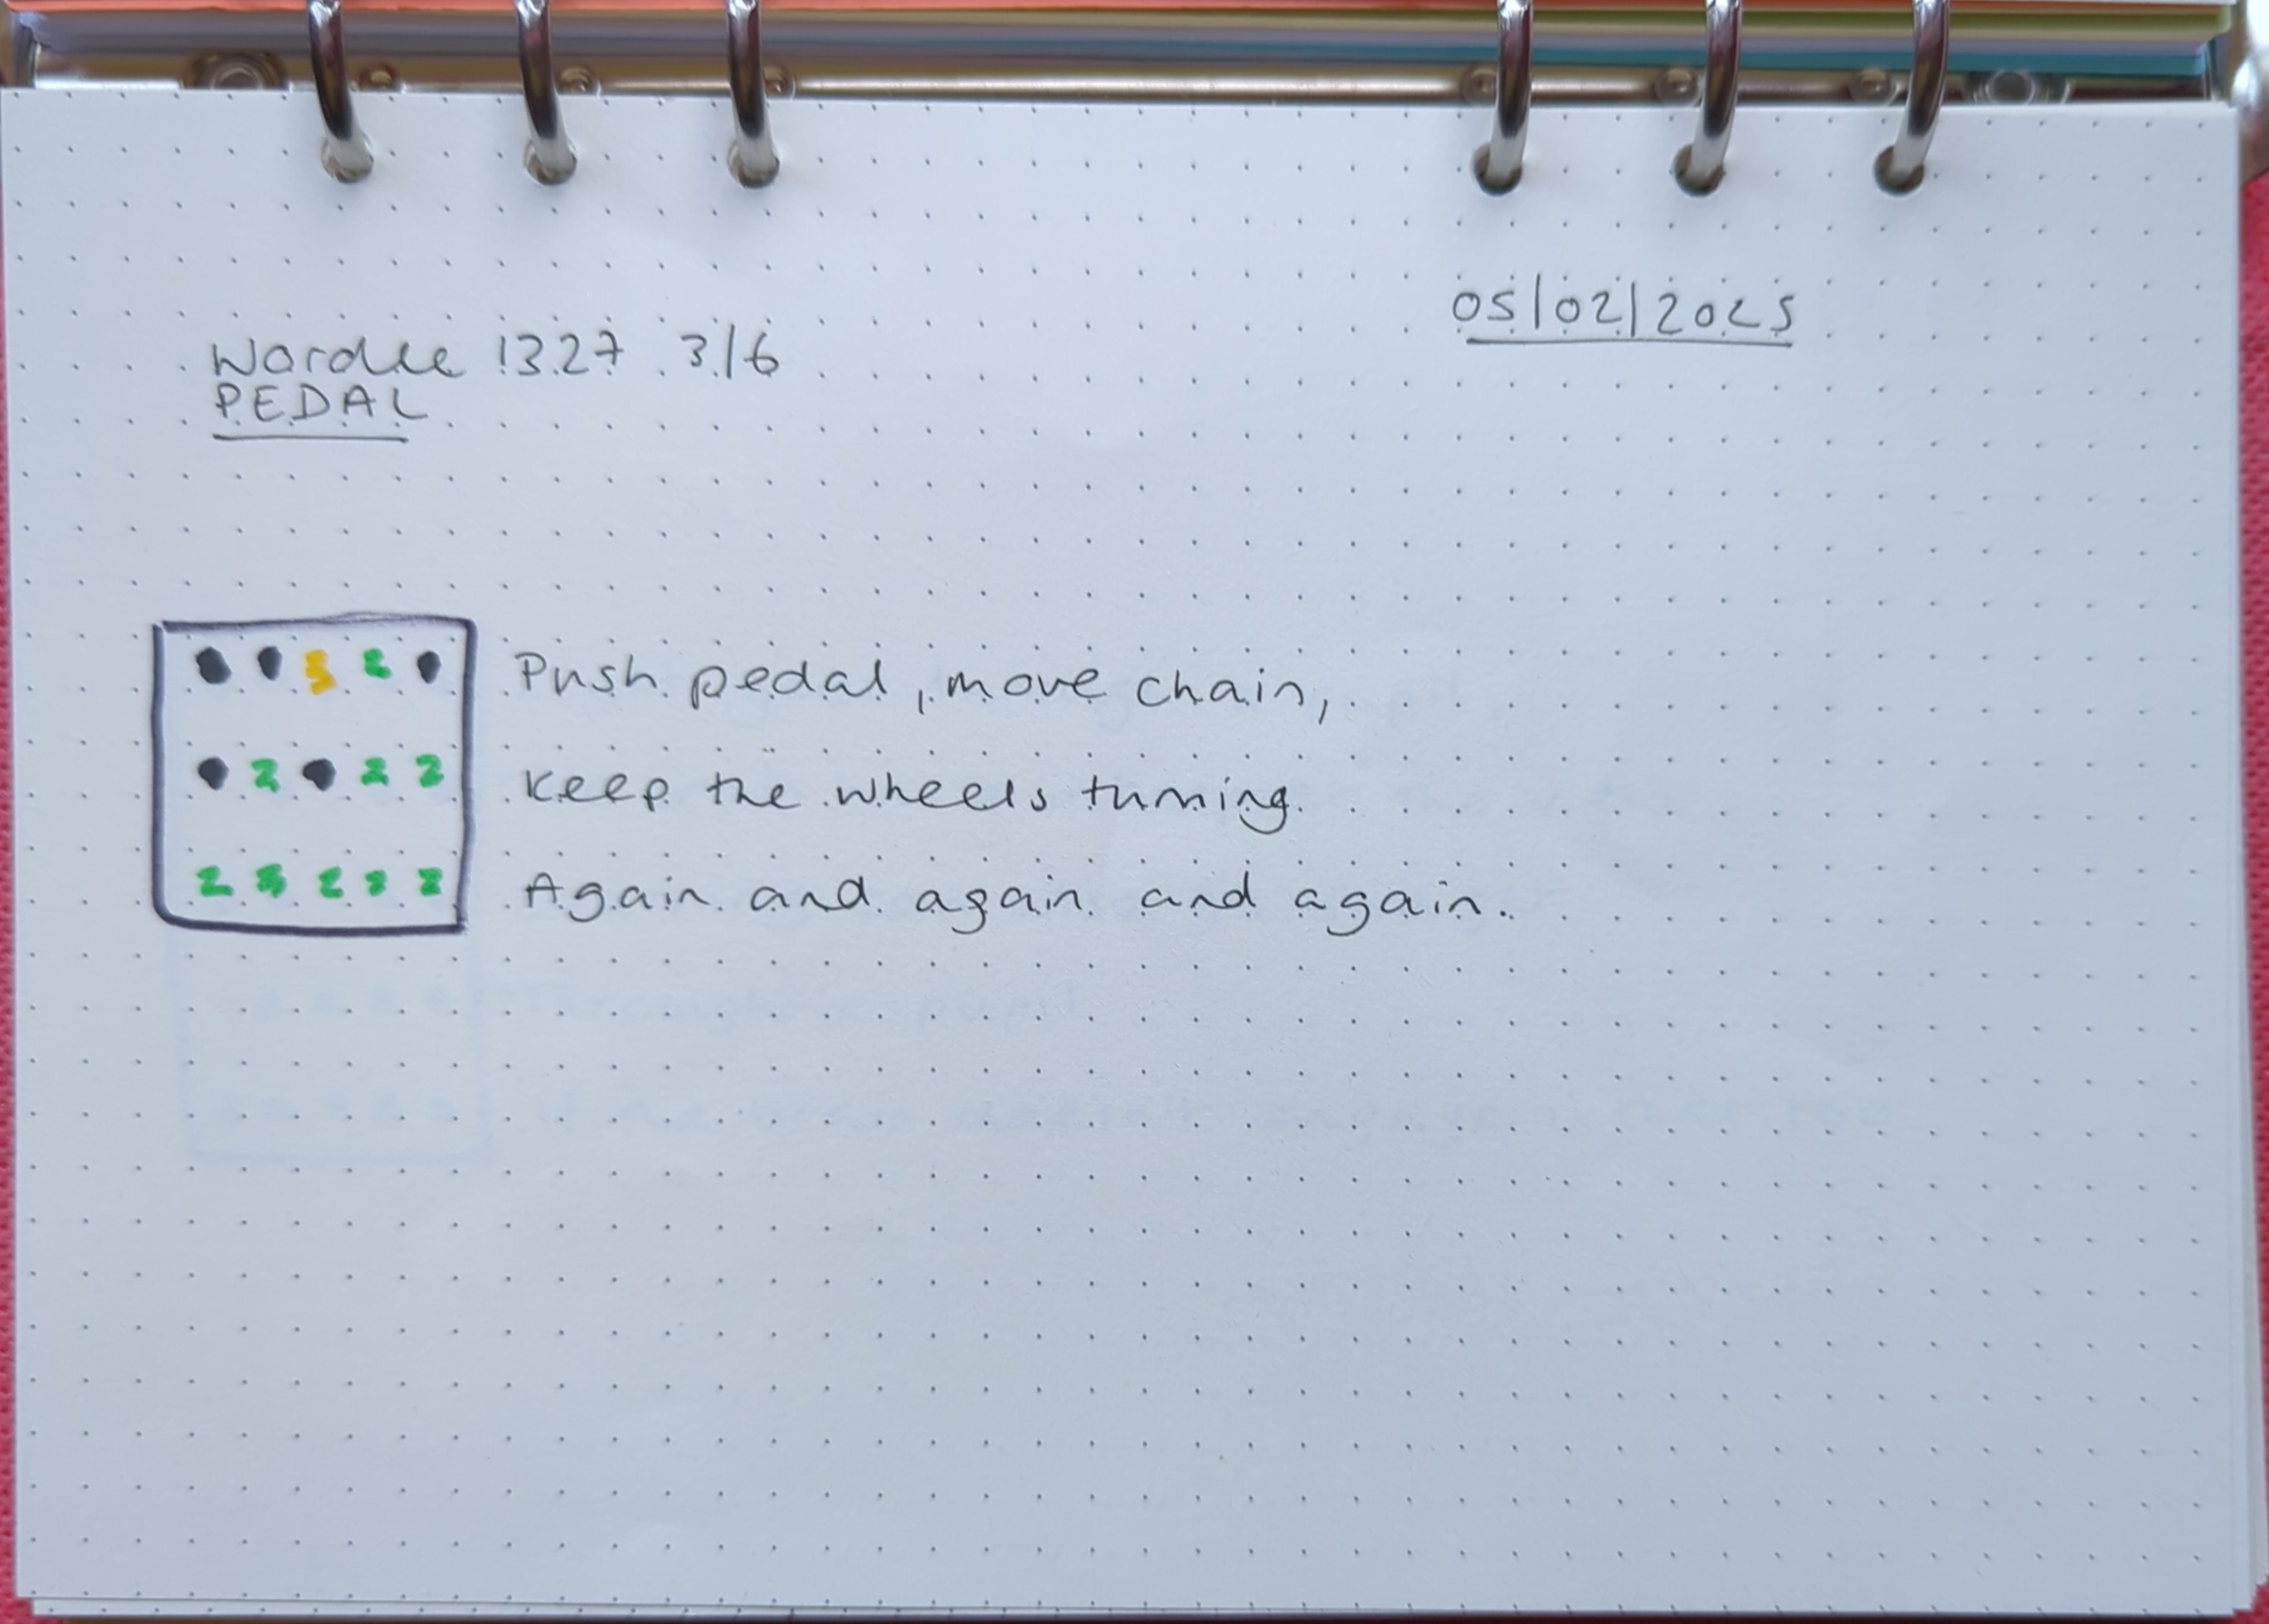 Wordle 1327 3/6
PEDAL
05/02/2025
Push pedal, move chain,
Keep the wheels turning.
Again and again and again.